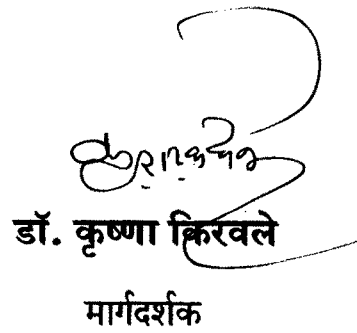 डॉ. कृष्णा किरवले
मार्गदर्शक